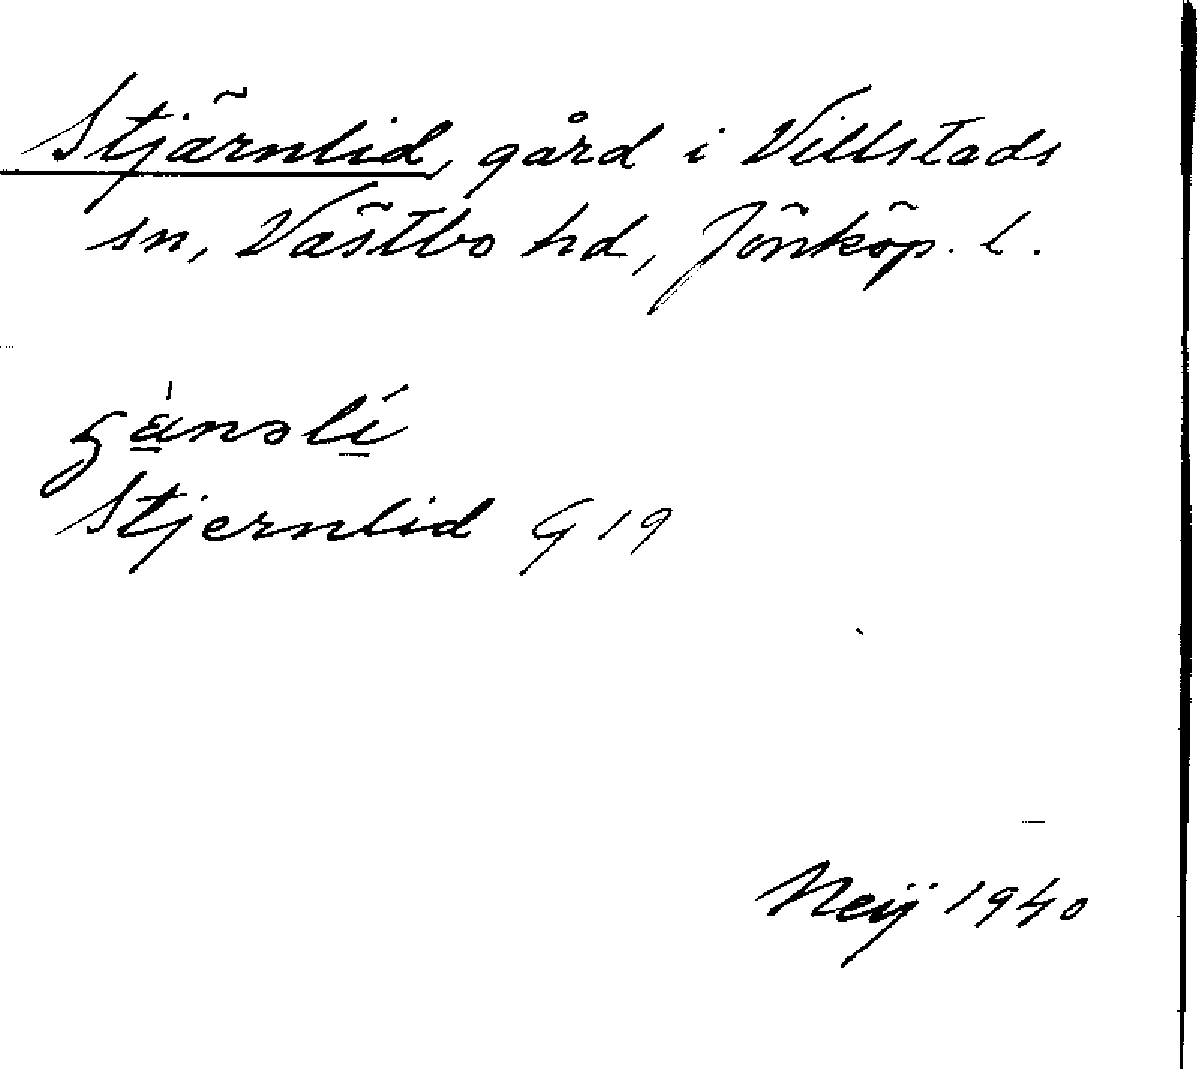 Stjärnlid, gård i Villstads
sn, Västbo hd, Jönköp. l.
Stjernlid G 19
Neij 1940